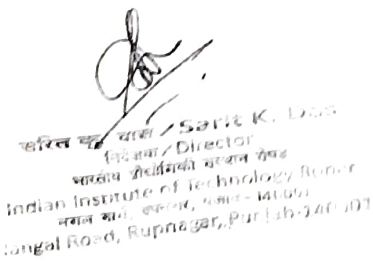 सरित कु. दास / Sarit K. Das
निदेशक / Director
भारतीय प्रौद्योगिकी संस्थान रोपड़
Indian Institute of Technology Ropar
नंगल मार्ग, रूपनगर, पंजाब - 140001
Nangal Road, Rupnagar, Punjab-140001